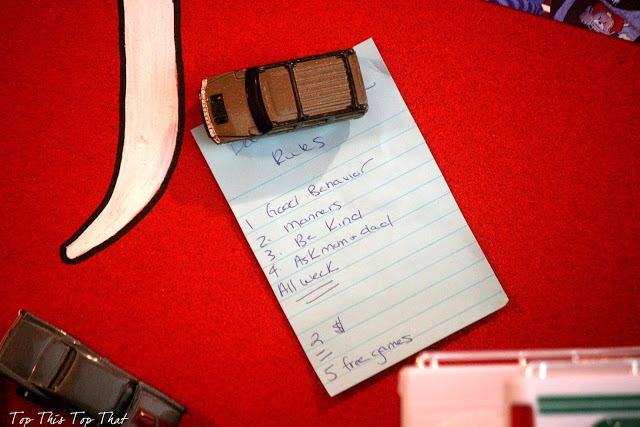 Rules
1 Good Behavior
2. manners
3. Be Kind
4. Ask mom + dad
All week
2 $
=
5 free games
Top This Top That